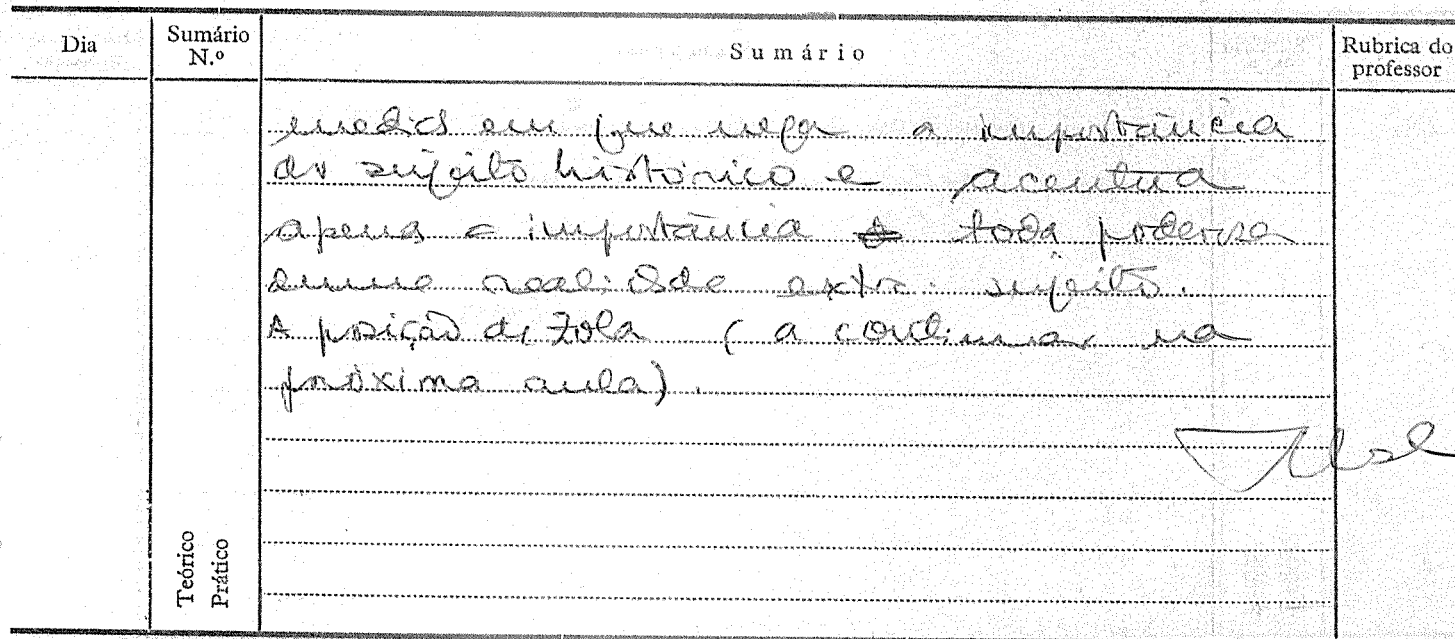 Dia
Sumário N.º
Sumário
Rubrica do professor
medida em que nega a importância
do sujeito histórico e acentua
apenas a importância toda poderosa
duma realidade extra-sujeito.
A posição de Zola (a continuar na
próxima aula).
Teórico
Prático